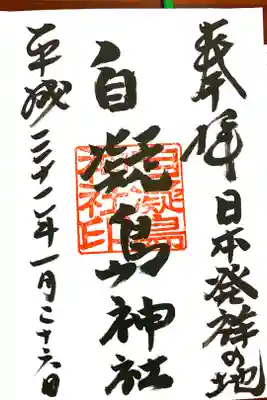 奉拝 日本発祥の地
自凝島神社
自凝島神社印
平成三十一年一月二十六日